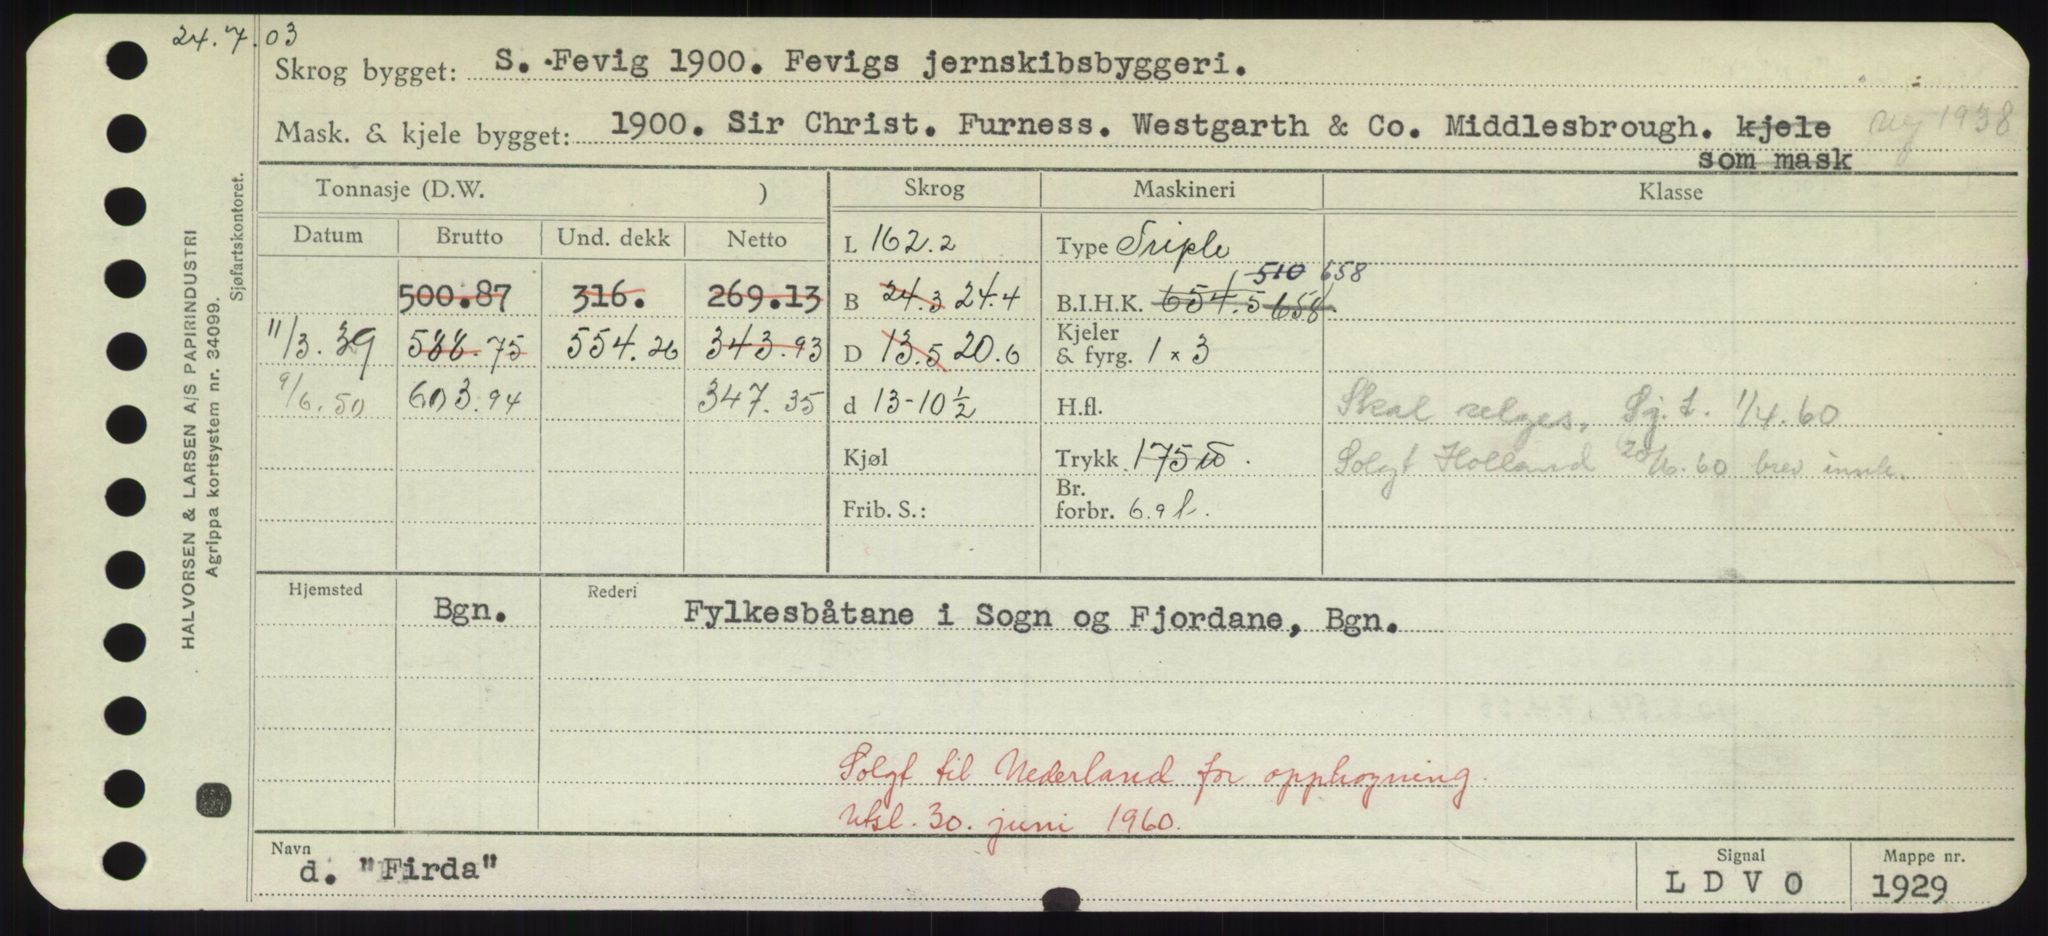 24.7.03
Skrog bygget: S. Fevig 1900. Fevigs jernskibsbyggeri.
Mask. & kjele bygget: 1900. Sir Christ. Furness. Westgarth & Co. Middlesbrough. kjele ny 1938
som mask
Tonnasje (D.W. ) Skrog Maskineri Klasse
Datum Brutto Und. dekk Netto L 162.2 Type Triple
510 658
500.87 316. 269.13 B 24.3 24.4 B.I.H.K. 654.5 658
11/3.39 588.75 554.26 343.93 D 13.5 20.6 Kjeler & fyrg. 1 x 3
9/6.50 603.94 347.35 d 13-10½ H.fl. Skal selges. Sj.t. 1/4.60
Kjøl Trykk 175 lb. Solgt Holland 20/6.60 brev innk.
Frib. S.: Br. forbr. 6.9 l.
Hjemsted Bgn. Rederi Fylkesbåtane i Sogn og Fjordane, Bgn.
Solgt til Nederland for opphogning.
Utsl. 30. juni 1960.
Navn Signal Mappe nr.
d. "Firda" L D V O 1929
HALVORSEN & LARSEN A/S PAPIRINDUSTRI
Agrippa kortsystem nr. 34099.
Sjøfartskontoret.